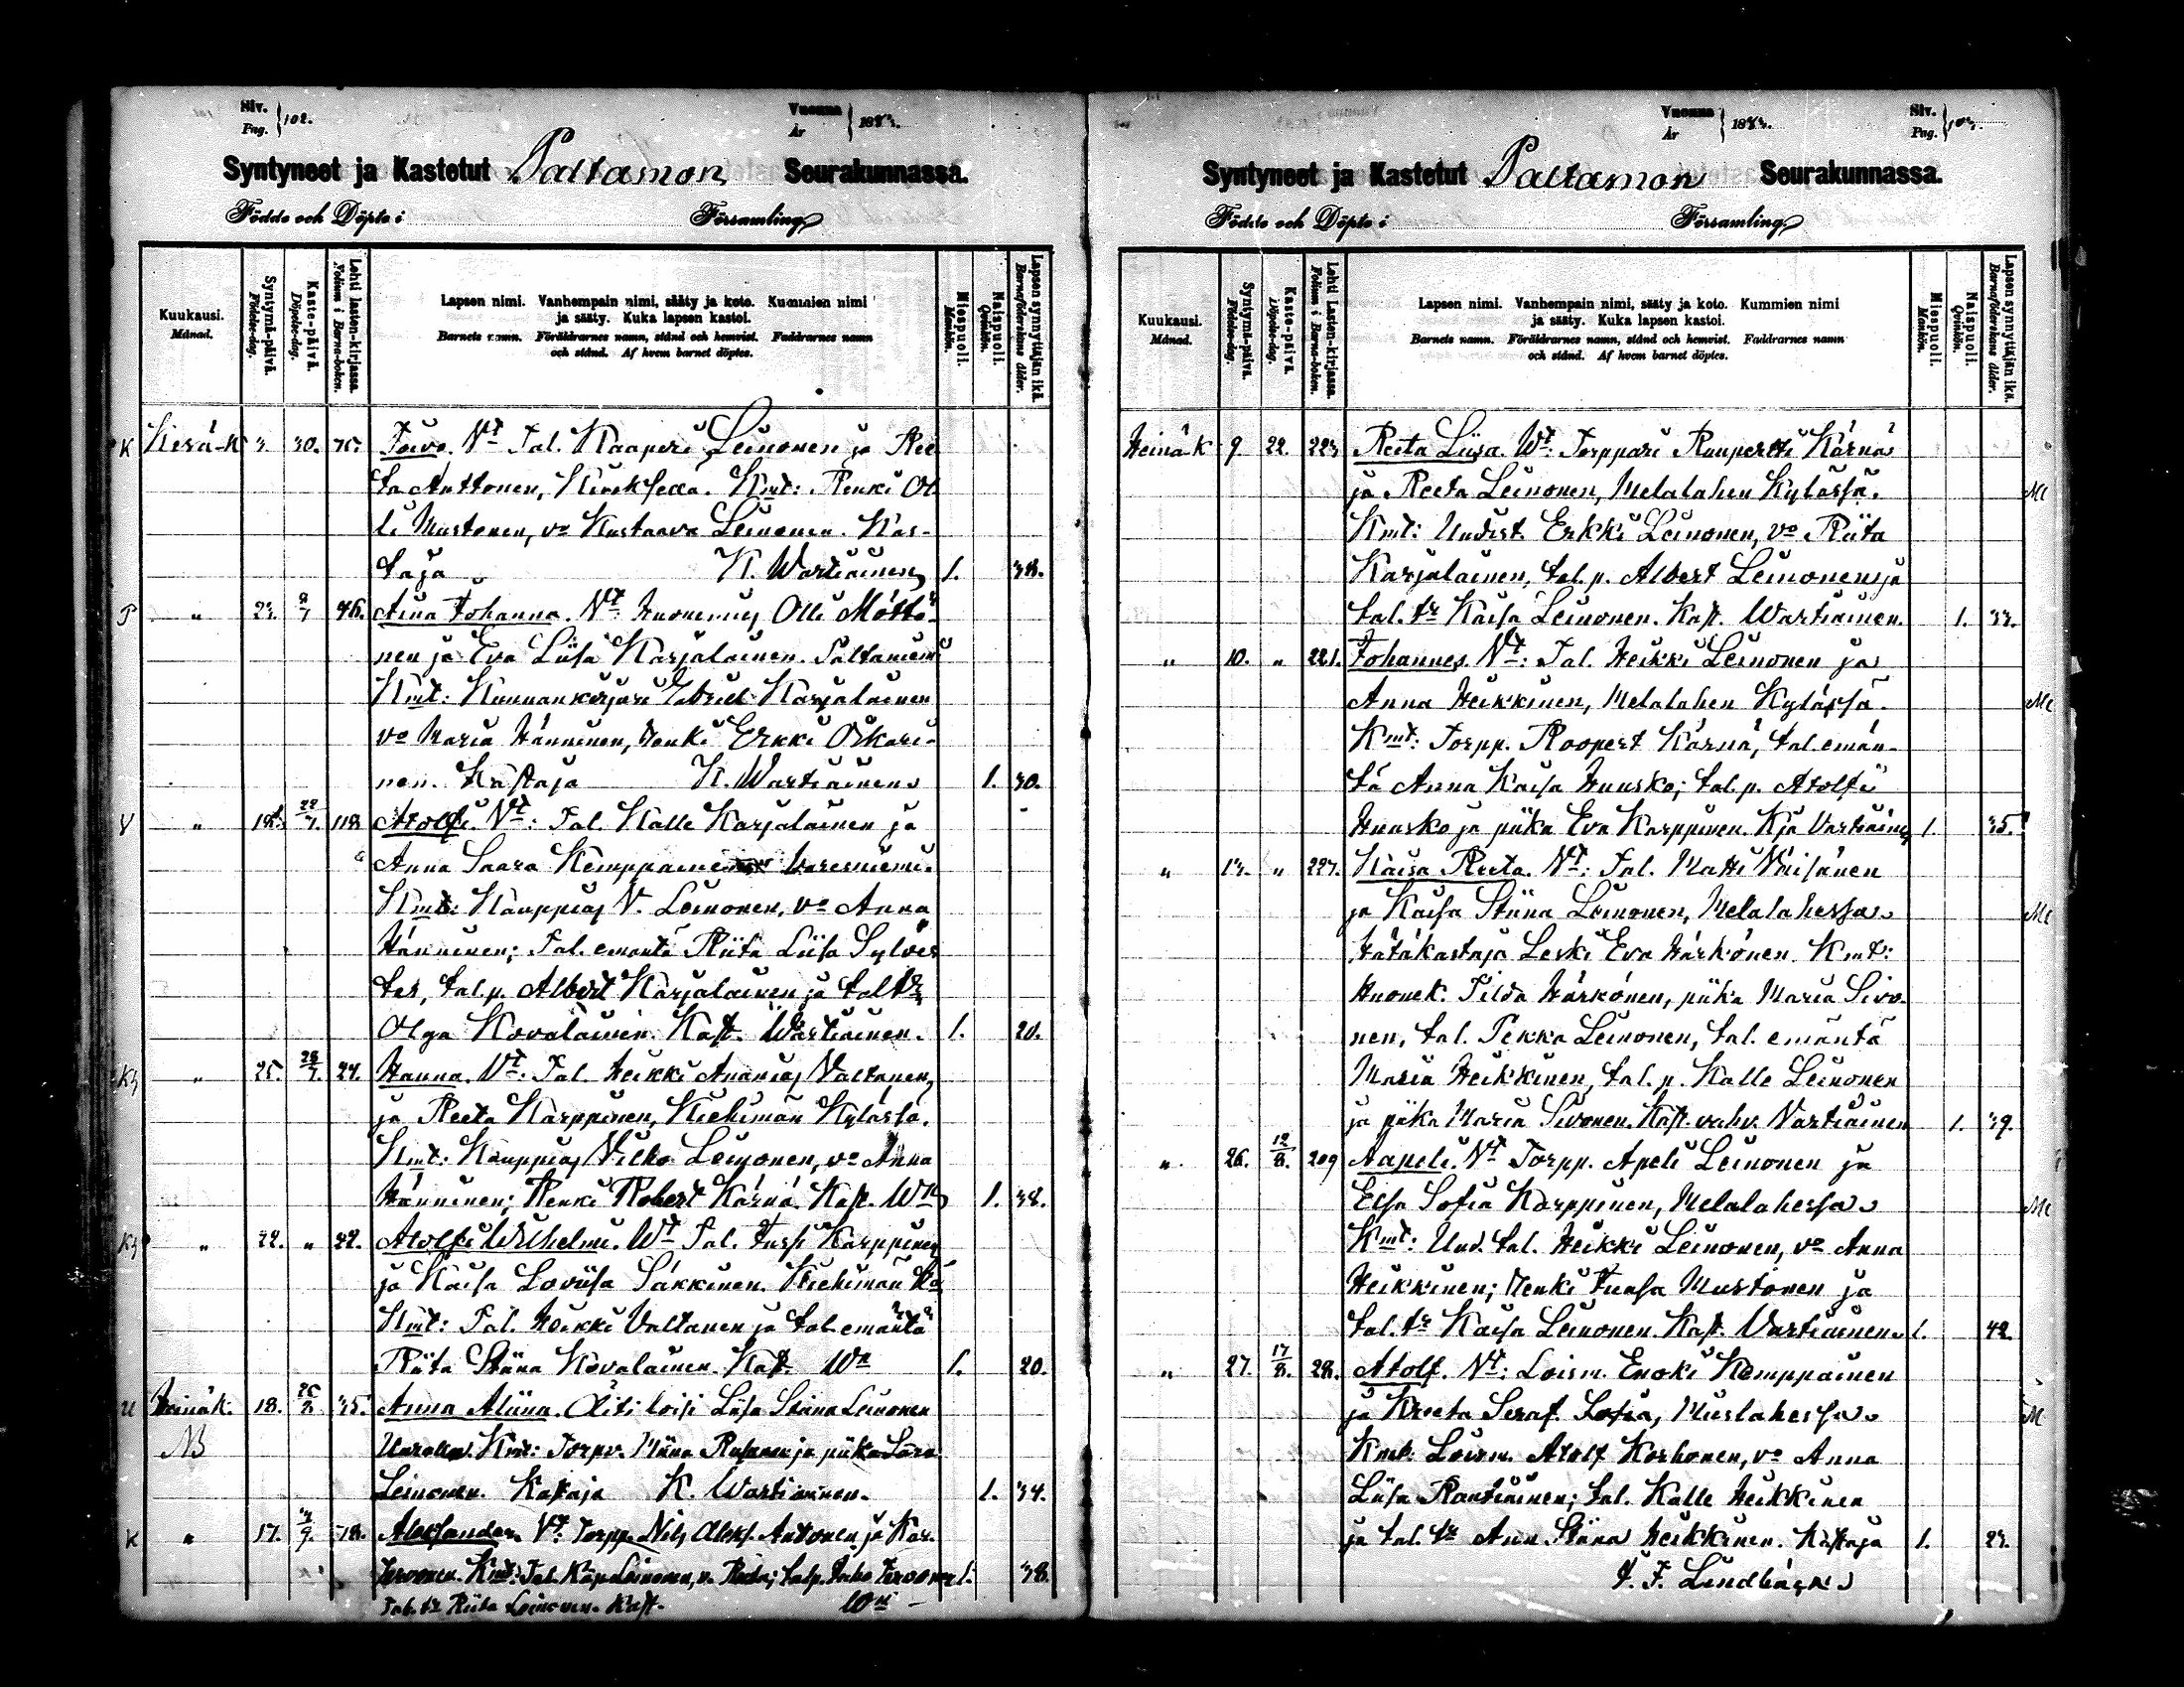 Siv. Pag. 102.
Vuonna År 188
Syntyneet ja Kastetut Paltamon Seurakunnassa.
Födde och Döpte i Församling
Kuukausi. Månad.
Syntymä-päivä. Födelse-dag.
Kaste-päivä. Döpelse-dag.
Lehti lasten-kirjassa. Folium i Barna-boken.
Lapsen nimi. Vanhempain nimi, sääty ja koto. Kummien nimi
ja sääty. Kuka lapsen kastoi.
Barnets namn. Föräldrarnes namn, stånd och hemvist. Faddrarnes namn
och stånd. Af hvem barnet döptes.
Miespuoli. Mankön.
Naispuoli. Qvinkön.
Lapsen synnyttäjän ikä. Barnaföderskans ålder.
K Kesä-K 3. 30. 75. Toivo. Vt Tal. Kaaperi Leinonen ja Ree
ta Anttonen, Kiveksessä. Kmt: Renki Ol
li Mustonen, vo Kustaava Leinonen. Kas-
taja K. Wartiainen 1. 38.
P " 23. 46. Aina Johanna. Vt: Huonemies Olli Möttö-
nen ja Eva Liisa Karjalainen. Paltaniemi
Kmt: Kunnankirjuri Karjalainen
vo Maria Hänninen, renki Erkki Oskari-
nen. Kastaja K. Wartiainen 1. 30.
V " 18. 22/7. 118. Atolfi. Vt: Tal. Kalle Karjalainen ja
Anna Saara Kemppainen Varesniemi.
Kmt: Kauppias V. Leinonen, vo Anna
Hänninen; Tal. emäntä Riita Liisa Sylves
ter, tal.p. Albert Karjalainen ja tal tr
Olga Kovalainen. Kast. Wartiainen. 1. 20.
" 25. 28/7. 27. Hanna. Vt: Tal. Heikki Ananias Valtanen
ja Reeta Karppinen, Kiehimän Kylässä.
Kmt: Kauppias Vilho Leinonen, vo Anna
Hänninen; Renki Robert Kärnä. Kast. Wn 1. 38.
" 22. " 22. Atolfi Vilhelmi. Vt Tal. Jussi Karppinen
ja Kaisa Loviisa Säkkinen. Kiehimän Ky
Kmt: Tal. Heikki Valtanen ja tal emäntä
Riita Stiina Kovalainen. Kast. Wn 1. 20.
U Heinäk. 18. 35. Anna Aliina. Äiti loisi Liisa Stiina Leinonen
NB Kmt: Torpp. Miina ja piika Saara
Leinonen. Kastaja K. Wartiainen. 1. 34.
K " 17. 78. Aleksander. Vt: Torpp. Nils Aleks. Antonen ja Kar.
Tervonen. Kmt: Tal. Leinonen, v. Reeta; talp. Juho Tervonen 1. 38.
Tal. tr Riita Leinonen. Kast. Wn
Siv. Pag. 103.
Vuonna År 188
Syntyneet ja Kastetut Paltamon Seurakunnassa.
Födde och Döpte i Församling
Kuukausi. Månad.
Syntymä-päivä. Födelse-dag.
Kaste-päivä. Döpelse-dag.
Lehti Lasten-kirjassa. Folium i Barna-boken.
Lapsen nimi. Vanhempain nimi, sääty ja koto. Kummien nimi
ja sääty. Kuka lapsen kastoi.
Barnets namn. Föräldrarnes namn, stånd och hemvist. Faddrarnes namn
och stånd. Af hvem barnet döptes.
Miespuoli. Mankön.
Naispuoli. Qvinkön.
Lapsen synnyttäjän ikä. Barnaföderskans ålder.
Heinäk 9. 22. 223 Reeta Liisa. Wt: Torppari Ruupertti Kärnä
ja Reeta Leinonen, Melalahen Kylässä. Me
Kmt: Uudist. Erkki Leinonen, vo Riita
Karjalainen, tal.p. Albert Leinonen ja
tal. tr Kaisa Leinonen. Kast. Wartiainen. 1. 33.
" 10. " 221. Johannes. Vt: Tal. Heikki Leinonen ja
Anna Heikkinen, Melalahen Kylässä. Me
Kmt: Torpp. Roopert Kärnä, tal. emän-
tä Anna Kaisa Huusko; tal.p. Atolfi
Huusko ja piika Eva Karppinen. Kja Vartiainen 1. 35.
" 13. " 227. Kaisa Reeta. Vt: Tal. Matti Väisänen
ja Kaisa Stiina Leinonen, Melalahessa. Me
Hätäkastaja Leski Eva Härkönen. Kmt:
Huonek. Tilda Härkönen, piika Maria Sivo-
nen, tal. Pekka Leinonen, tal. emäntä
Maria Heikkinen, tal. p. Kalle Leinonen
ja piika Maria Sivonen. Kast. vahv. Vartiainen 1. 39.
" 26. 12/8. 209 Aapeli. Vt Torpp. Apeli Leinonen ja
Elsa Sofia Karppinen, Melalahessa Me
Kmt: Uud. tal. Heikki Leinonen, vo Anna
Heikkinen; renki Juusa Mustonen ja
tal. tr Kaisa Leinonen. Kast. Vartiainen 1. 42.
" 27. 17/8. 28. Atolf. Vt: Loism. Enoki Kemppainen
ja Kreeta Seraf. Sofia, Mieslahessa. M
Kmt: Loism. Atolf Korhonen, vo Anna
Liisa Rantiainen; tal. Kalle Heikkinen
ja tal. tr Anna Stiina Heikkinen. Kastaja 1. 23.
J. F. Lindbäck